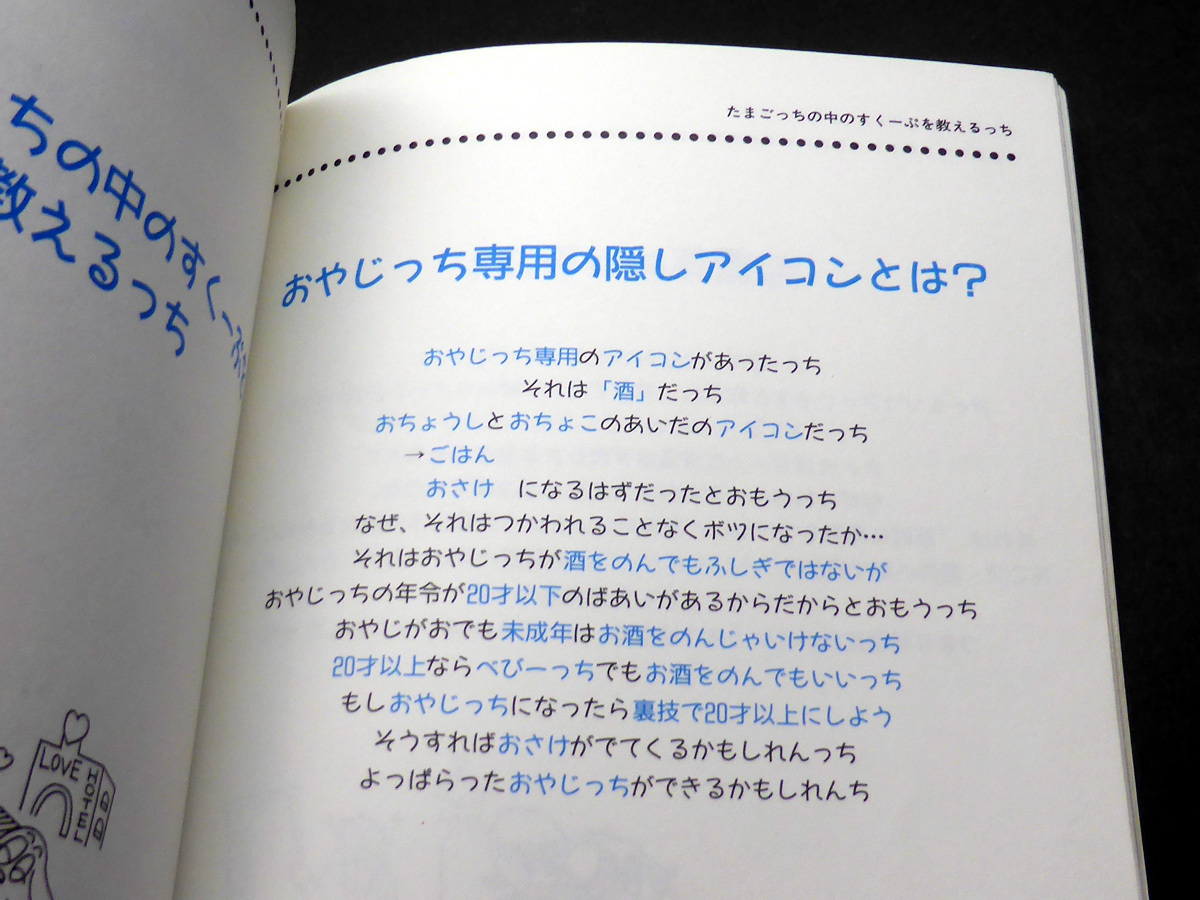 ちの中のすくーぷを
教えるっち
LOVE
HOTEL
たまごっちの中のすくーぷを教えるっち
おやじっち専用の隠しアイコンとは?
おやじっち専用のアイコンがあったっち
それは「酒」だっち
おちょうしとおちょこのあいだのアイコンだっち
→ごはん
おさけ になるはずだったとおもうっち
なぜ、それはつかわれることなくボツになったか…
それはおやじっちが酒をのんでもふしぎではないが
おやじっちの年令が20才以下のばあいがあるからだからとおもうっち
おやじがおでも未成年はお酒をのんじゃいけないっち
20才以上ならべびーっちでもお酒をのんでもいいっち
もしおやじっちになったら裏技で20才以上にしよう
そうすればおさけがでてくるかもしれんっち
よっぱらったおやじっちができるかもしれんち